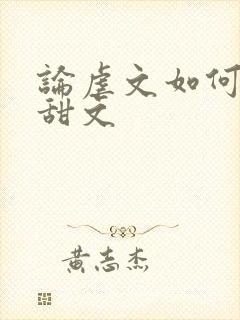 論虐文如何
甜文
黃志杰